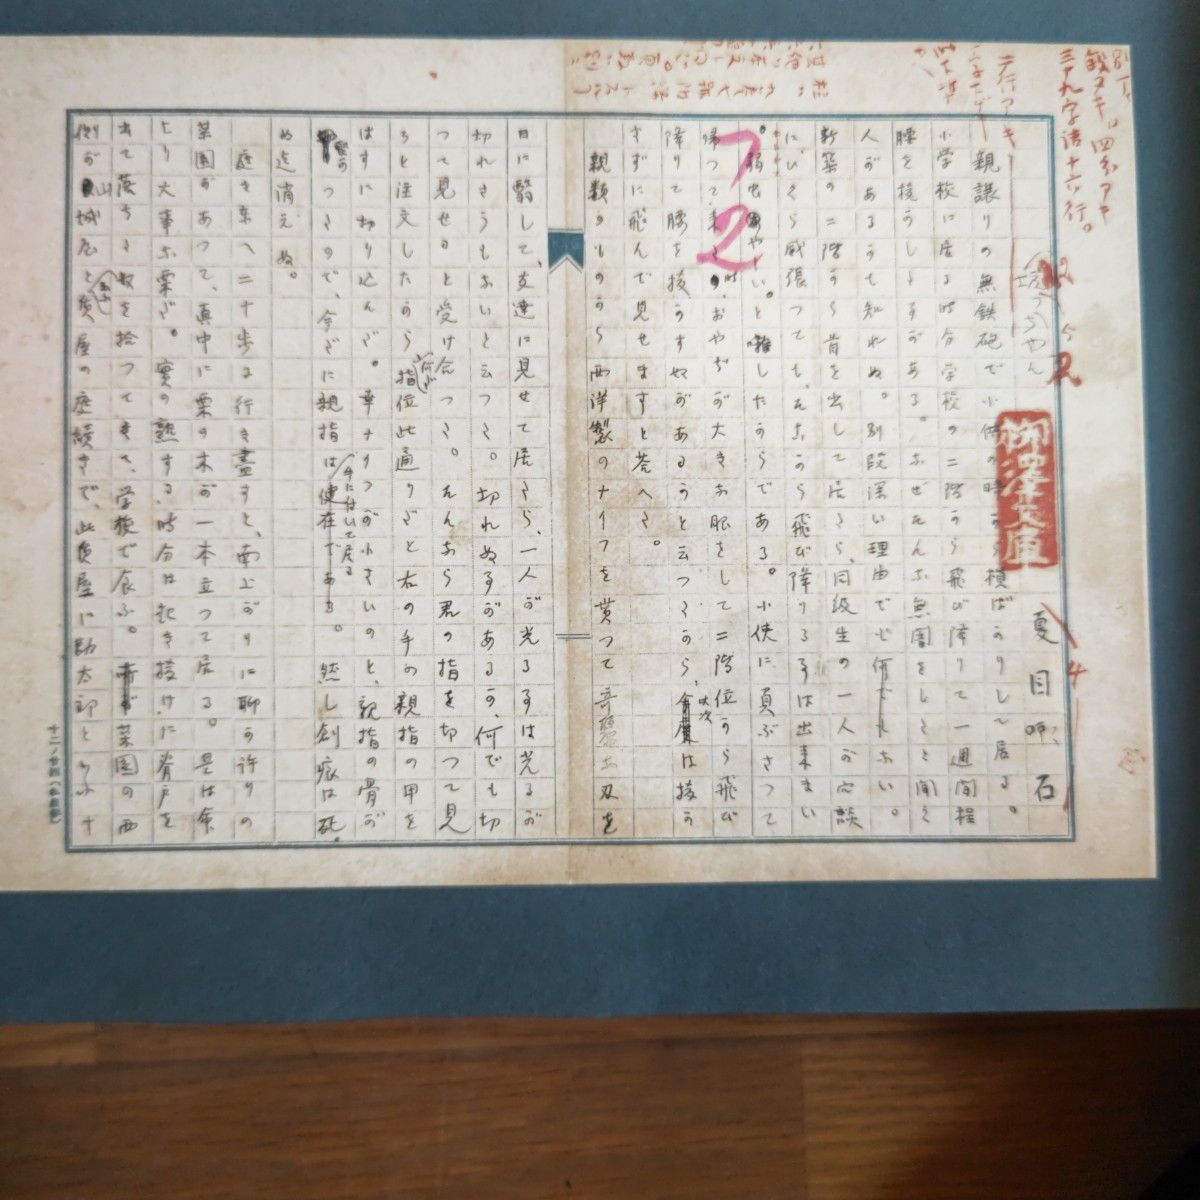 坊っちやん
夏目漱石
親譲りの無鉄砲で小供の時から損ばかりして居る。
小学校に居る時分学校の二階から飛び降りて一週間程
腰を抜かした事がある。なぜそんな無闇をしたと聞く
人があるかも知れぬ。別段深い理由でもない。
新築の二階から首を出して居たら、同級生の一人が冗談
に、いくら威張つても、そこから飛び降りる事は出来まい
。弱虫やーい。と囃したからである。小使に負ぶさつて
帰つて来た時、おやぢが大きな眼をして二階位から飛び
降りて腰を抜かす奴があるかと云つたから、此次は抜か
さずに飛んで見せますと答へた。
親類のものから西洋製のナイフを貰つて奇麗な刃を
日に翳して、友達に見せて居たら、一人が光る事は光るが
切れさうもないと云つた。切れぬ事があるか、何でも切
つて見せると受け合つた。そんなら君の指を切つて見
ろと注文したから、何だ指位此通りだと右の手の親指の甲を
はすに切り込んだ。幸ナイフが小さいのと、親指の骨が
堅かつたので、今だに親指は手に付いて居る。然し創痕は死
ぬ迄消えぬ。
庭を東へ二十歩に行き盡すと、南上がりに聊か許りの
菜園があつて、真中に栗の木が一本立つて居る。是は命
より大事な栗だ。實の熟する時分は起き抜けに脊戸を
出て落ちた奴を拾つてきて、学校で食ふ。菜園の西
側が山城屋と云ふ質屋の庭続きで、此質屋に勘太郎といふ十
三十九字詰十六行。
柳澤文庫
72